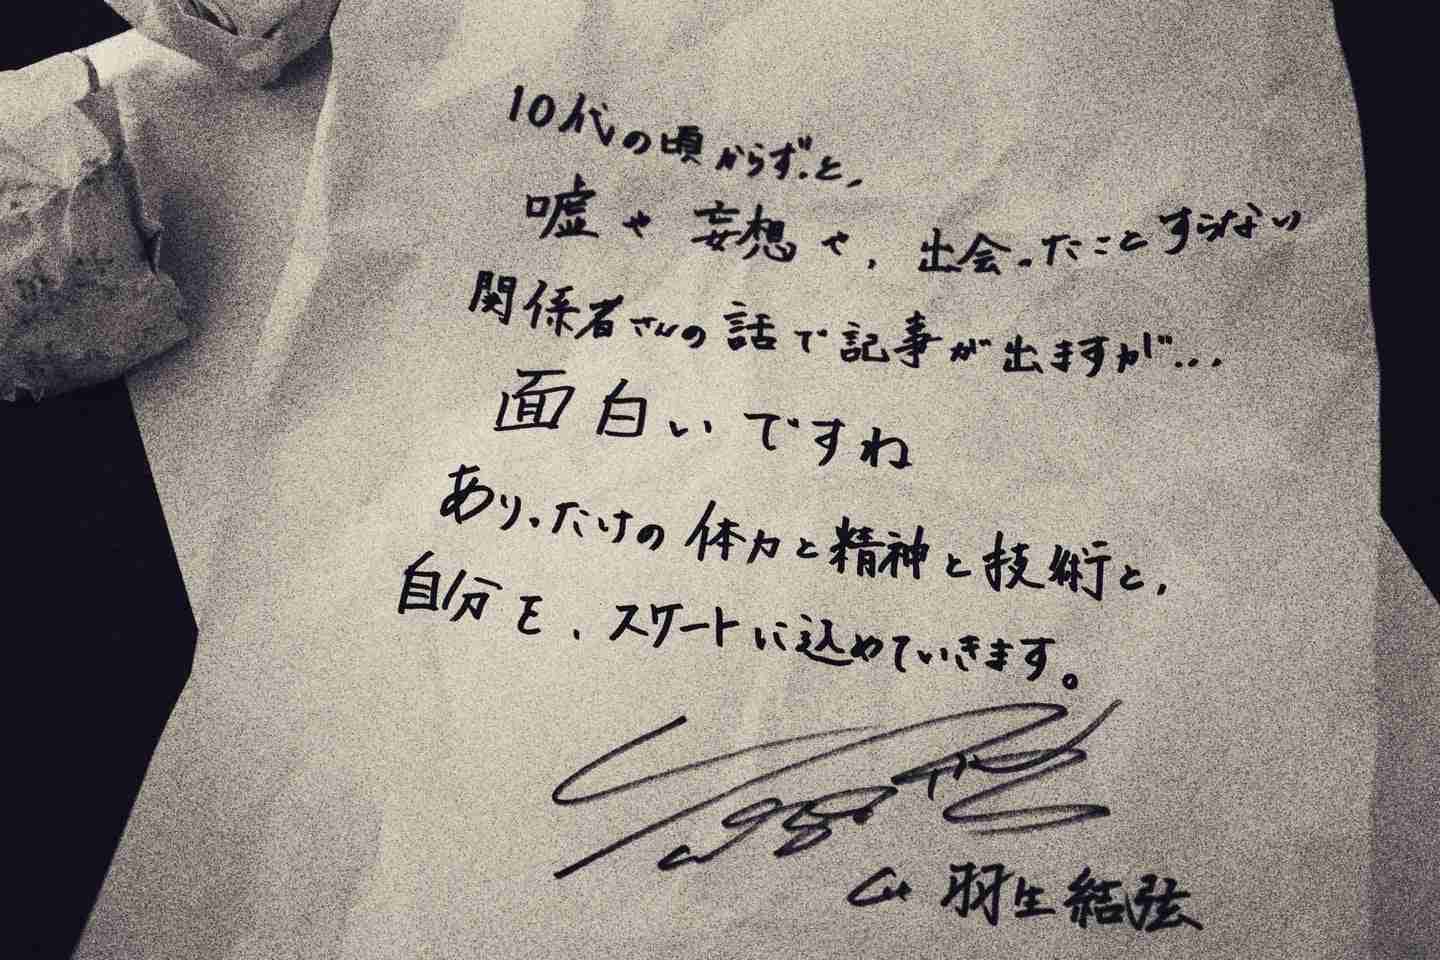 10代の頃からずっと、
嘘や妄想や、出会ったことすらない
関係者さんの話で記事が出ますが…
面白いですね
ありったけの体力と精神と技術と、
自分を、スケートに込めていきます。
羽生結弦